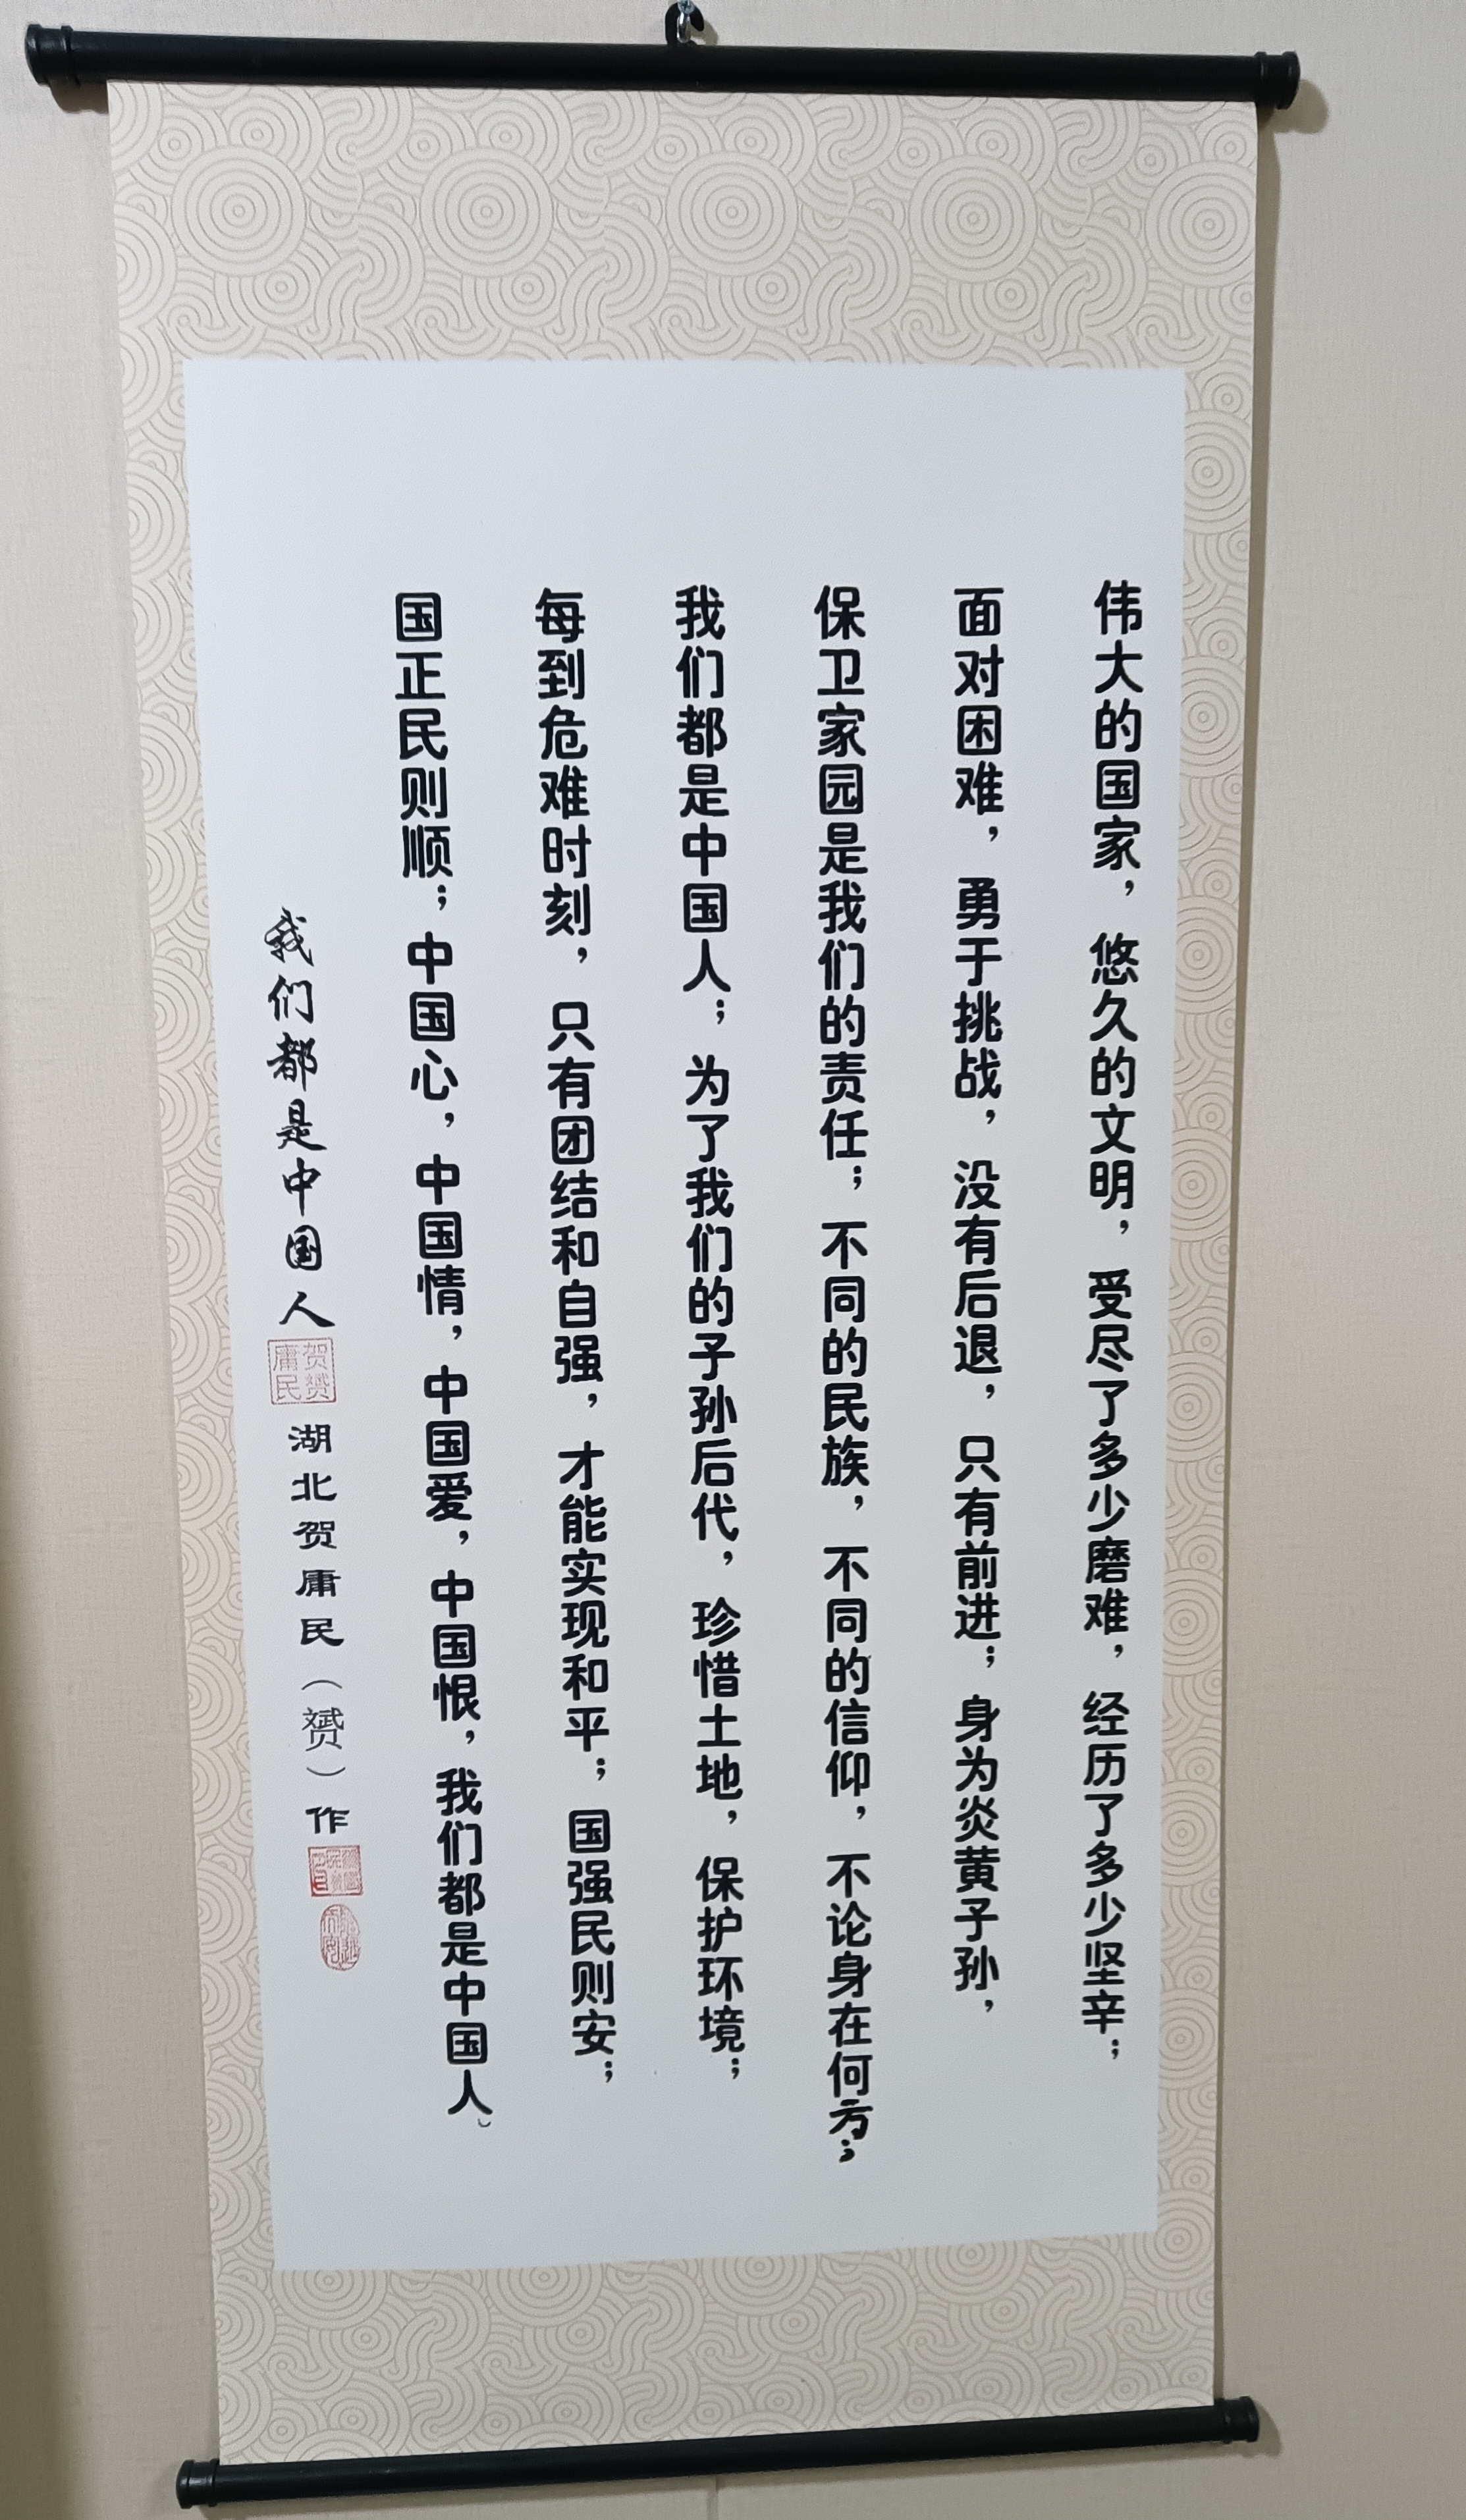 伟大的国家，悠久的文明，受尽了多少磨难，经历了多少坚辛；
面对困难，勇于挑战，没有后退，只有前进；身为炎黄子孙，
保卫家园是我们的责任；不同的民族，不同的信仰，不论身在何方；
我们都是中国人；为了我们的子孙后代，珍惜土地，保护环境；
每到危难时刻，只有团结和自强，才能实现和平；国强民则安；
国正民则顺；中国心，中国情，中国爱，中国恨，我们都是中国人。
我们都是中国人 贺赟庸民 湖北贺庸民（赟）作